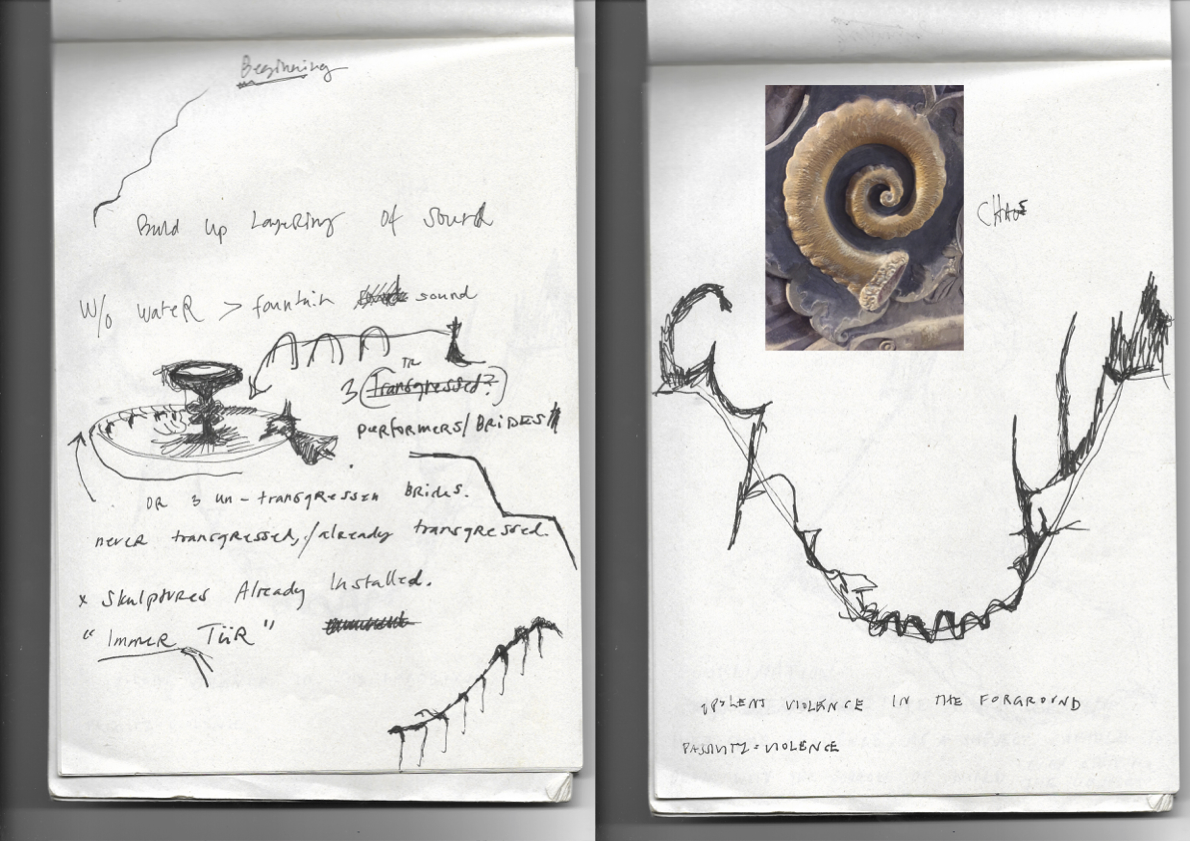 Beginning
Build up Layering of Sound
W/o wateR > fountain sound
TR
3 (Transgressed?)
performers/BRIDES
OR 3 un-transgressed Brides.
never transgressed,/already transgressed.
x Skulptures Already Installed.
"Immer TüR"
CHAOS
OPULENT VIOLENCE IN THE FORGROUND